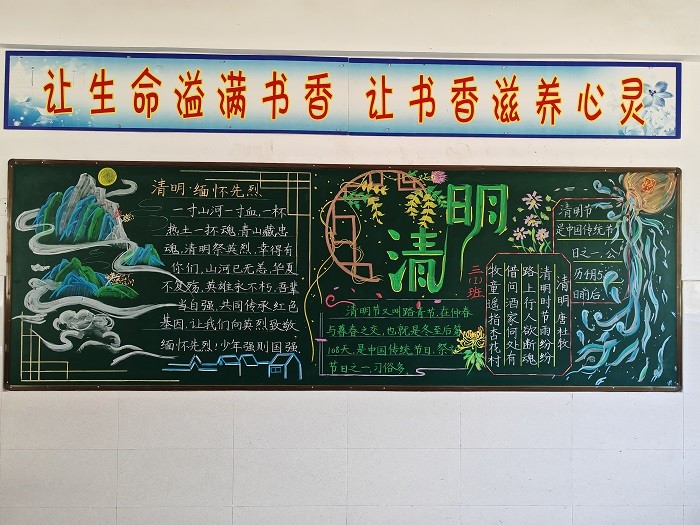 让生命溢满书香 让书香滋养心灵
清明·缅怀先烈
一寸山河一寸血,一杯
热土一抔魂,青山藏忠
魂,清明祭英烈.幸得有
你们,山河已无恙.华夏
不复殇.英雄永不朽.吾辈
当自强.共同传承红色
基因,让我们向英烈致敬
缅怀先烈:少年强则国强.
清明
三(1)班
清明节又叫踏青节,在仲春
与暮春之交,也就是冬至后第
108天.是中国传统节日,祭
节日之一,习俗多.
清明 唐 杜牧
清明时节雨纷纷
路上行人欲断魂
借问酒家何处有
牧童遥指杏花村
清明节
是中国传统节
日之一,公
历4月5
日前后.